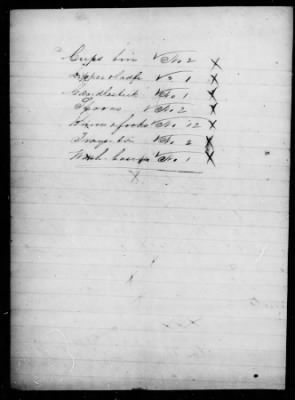 Cups tin √ No 2 X
Dipper √ No 1 X
Candlestick √ No 1 X
√ No 2 X
Knives & forks √ No 12 X
Trays tin √ No 2 X
Wash basin √ No 1 X
X